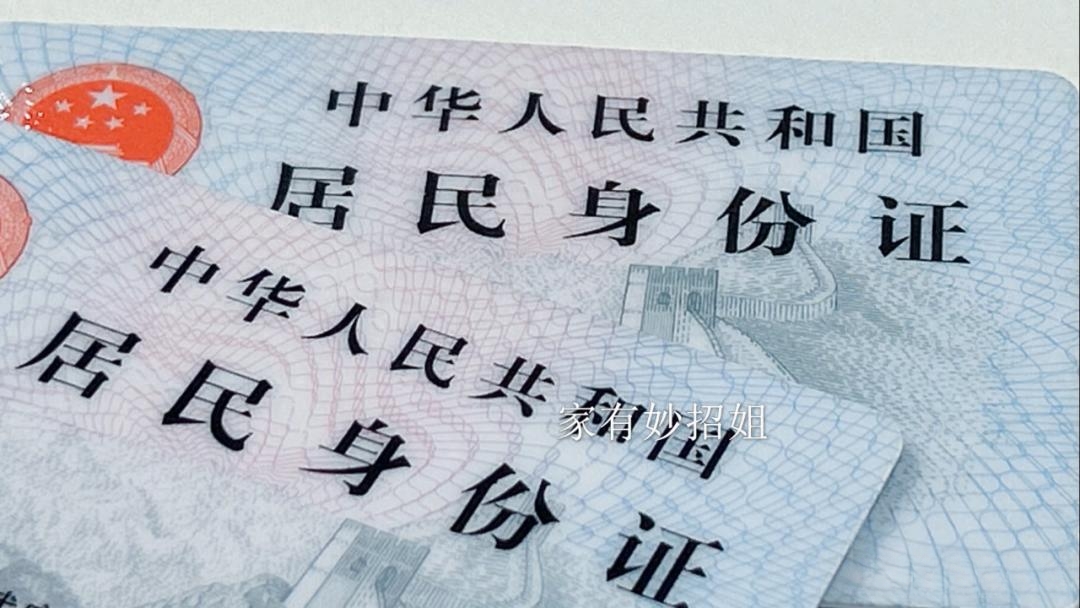 中华人民共和国
居民身份证
中华人民共和国
居民身份证
家有妙招姐